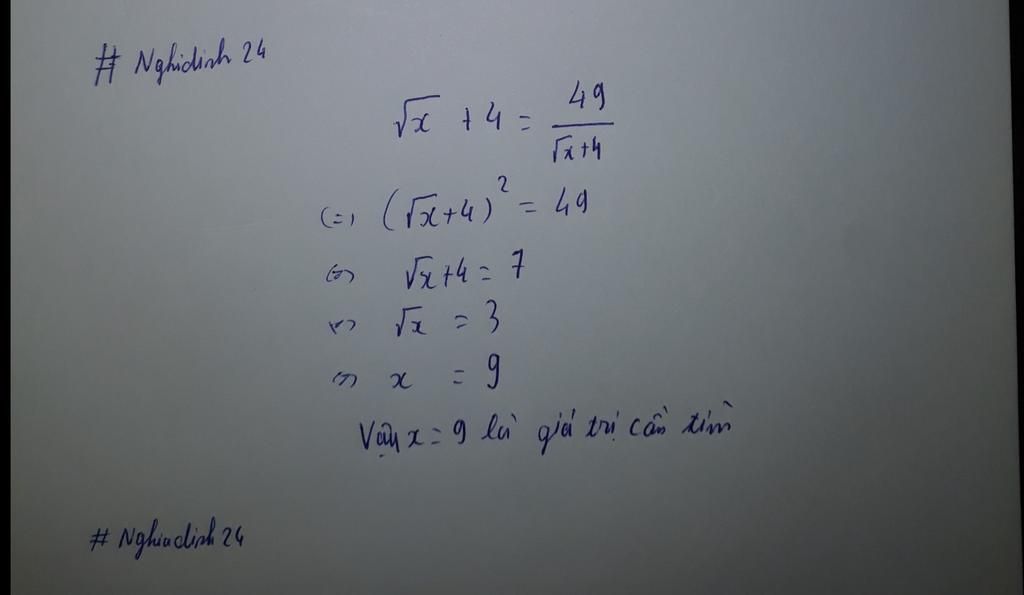 # Nghidinh 24
√x + 4 = 49/(√x+4)
(=) (√x+4)² = 49
(=) √x+4 = 7
(=) √x = 3
(=) x = 9
Vậy x = 9 là giá trị cần tìm
# Nghiadinh 24